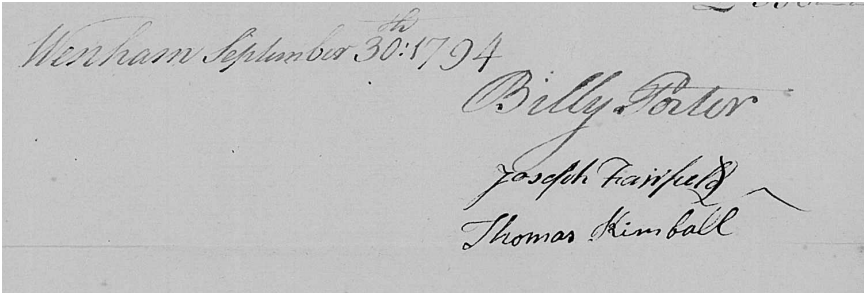 Wenham September 30th: 1794
Billy Porter
Joseph Fairfield
Thomas Kimball